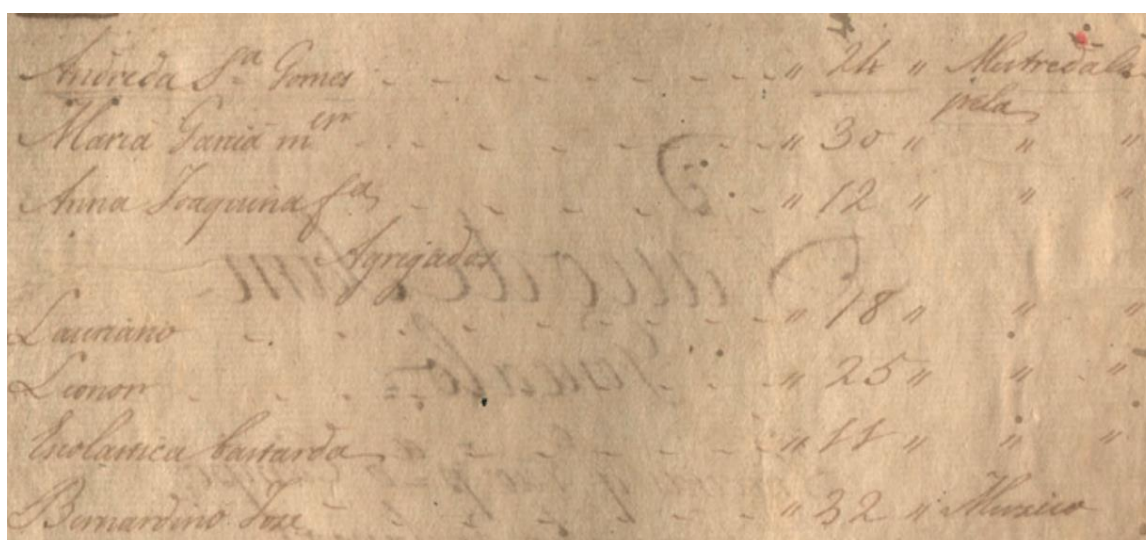 Andre da S.ª Gomes - - - - - - - " 24 " Mestre da Ca
pela
Maria Garcia m.er - - - - - - - " 30 " " "
Anna Joaquina f.ª - - - - - - - " 12 " " "
Agregados
Lauriano - - - - - - - " 18 " " "
Leonor - - - - - - - " 25 " " "
Escolastica bastarda - - - - - - - " 11 " " "
Bernardino Jose - - - - - - - " 32 " Muzico